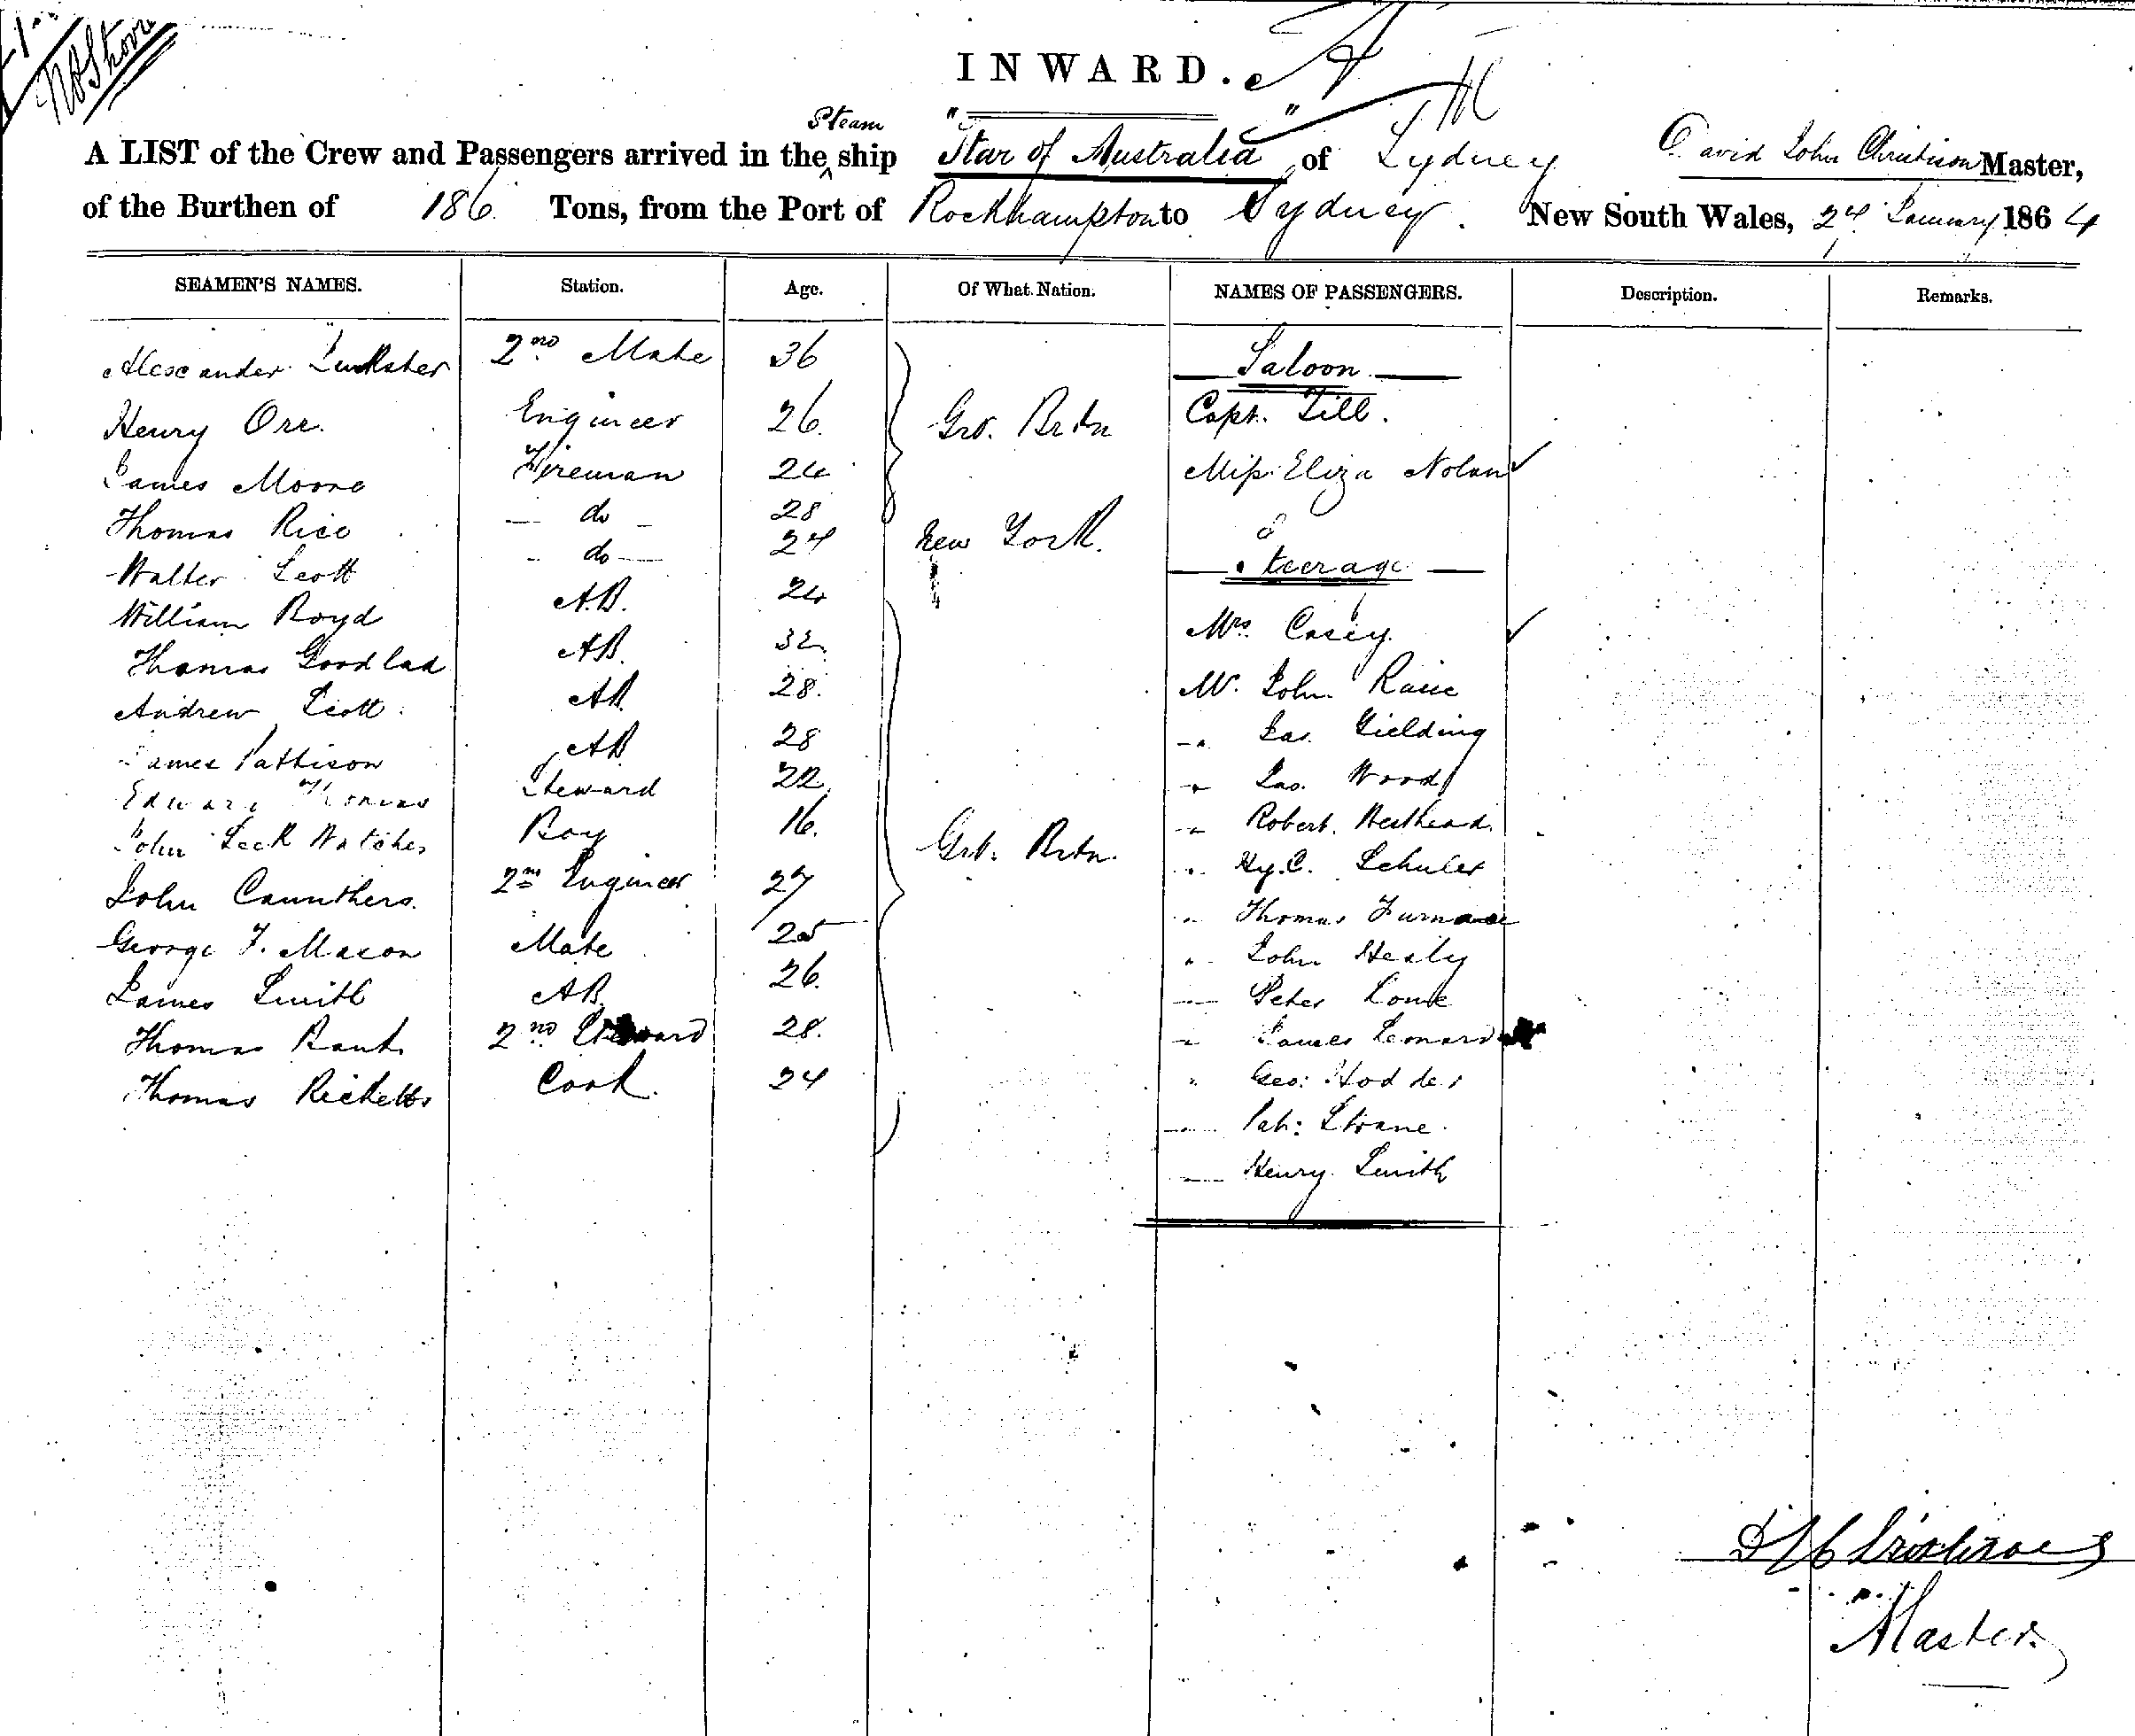 No Stow
INWARD.
Steam
A LIST of the Crew and Passengers arrived in the ^ ship "Star of Australia" of Sydney David John Christison Master,
of the Burthen of 186 Tons, from the Port of Rockhampton to Sydney. New South Wales, 24 January 1864
SEAMEN'S NAMES. Station. Age. Of What Nation. NAMES OF PASSENGERS. Description. Remarks.
Alexander 2nd Mate 36 Saloon
Henry Orr. Engineer 26. Grt. Brtn Capt. Till.
James Moore Fireman 24 Miss Eliza Nolan ✓
Thomas Rice — do — 28 New York.
Walter Scott - do — 24 Steerage
William Boyd A.B. 24 Mrs. Casey. ✓
Thomas Goodlad AB. 32. Mr. John
Andrew Scott. AB 28. " Jas. Gielding
James Pattison AB 28 " Jas. Wood
Edward Thomas Steward 22. " Robert.
John Leck Boy 16. Grt. Brtn. " Hy. C. Schuler
John Caunthers. 2nd Engineer 27 " Thomas Furnace
George F. Mason Mate 25 " John Healy
James Smith AB. 26. — Peter
Thomas 2nd Steward 28. " James Leonard
Thomas Ricketts Cook. 24 " Geo: Hodder
— Pat: Sloane.
— Henry Smith
D J Christison
Master.